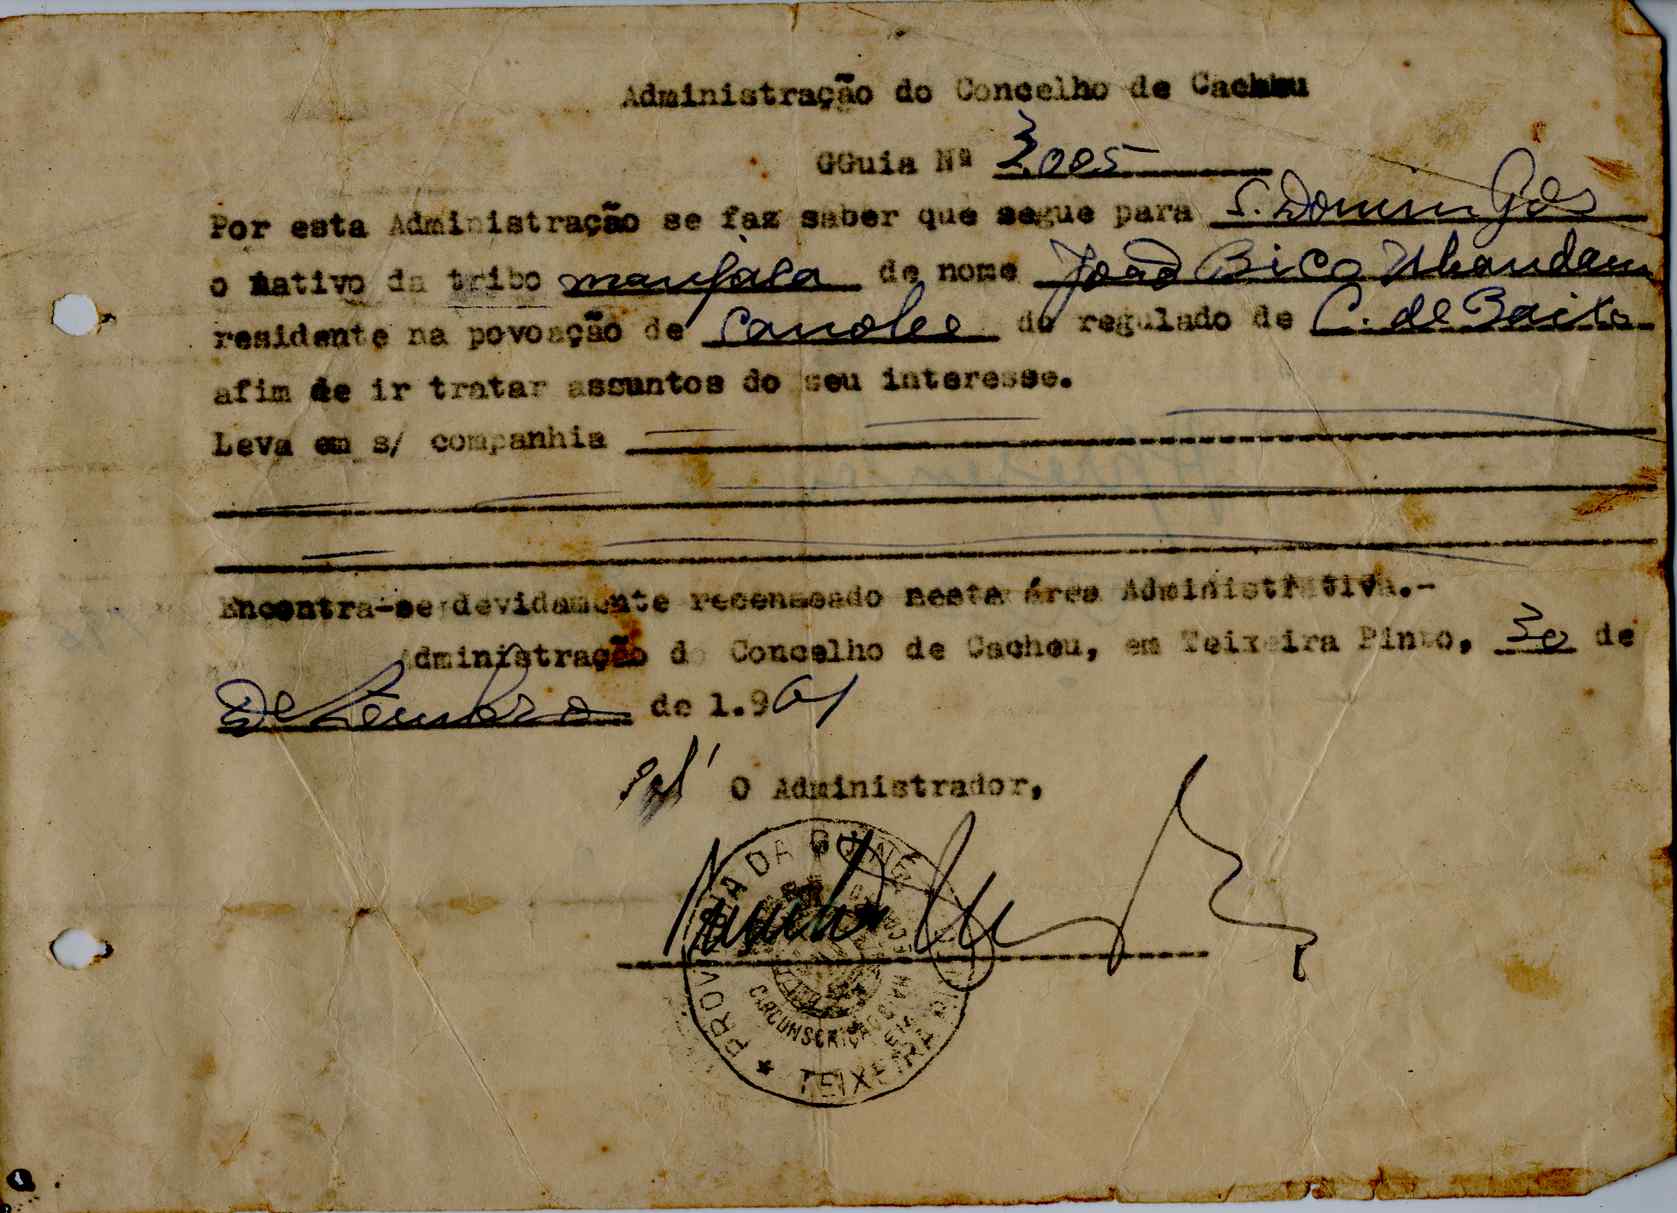 Administração do Concelho de Cacheu
GGuia Nº 3005
Por esta Administração se faz saber que segue para S. Domingos
o nativo da tribo manjaca de nome João Bico
residente na povoação de do regulado de C. de Baixo
afim de ir tratar assuntos do seu interesse.
Leva em s/ companhia
Encontra-se devidamente recenseado nesta área Administrativa.-
Administração do Concelho de Cacheu, em Teixeira Pinto, 30 de
Setembro de 1.961
Pel' O Administrador,
PROVINCIA DA GUINÉ
CIRCUMSCRIÇÃO CIVIL
TEIXEIRA PINTO